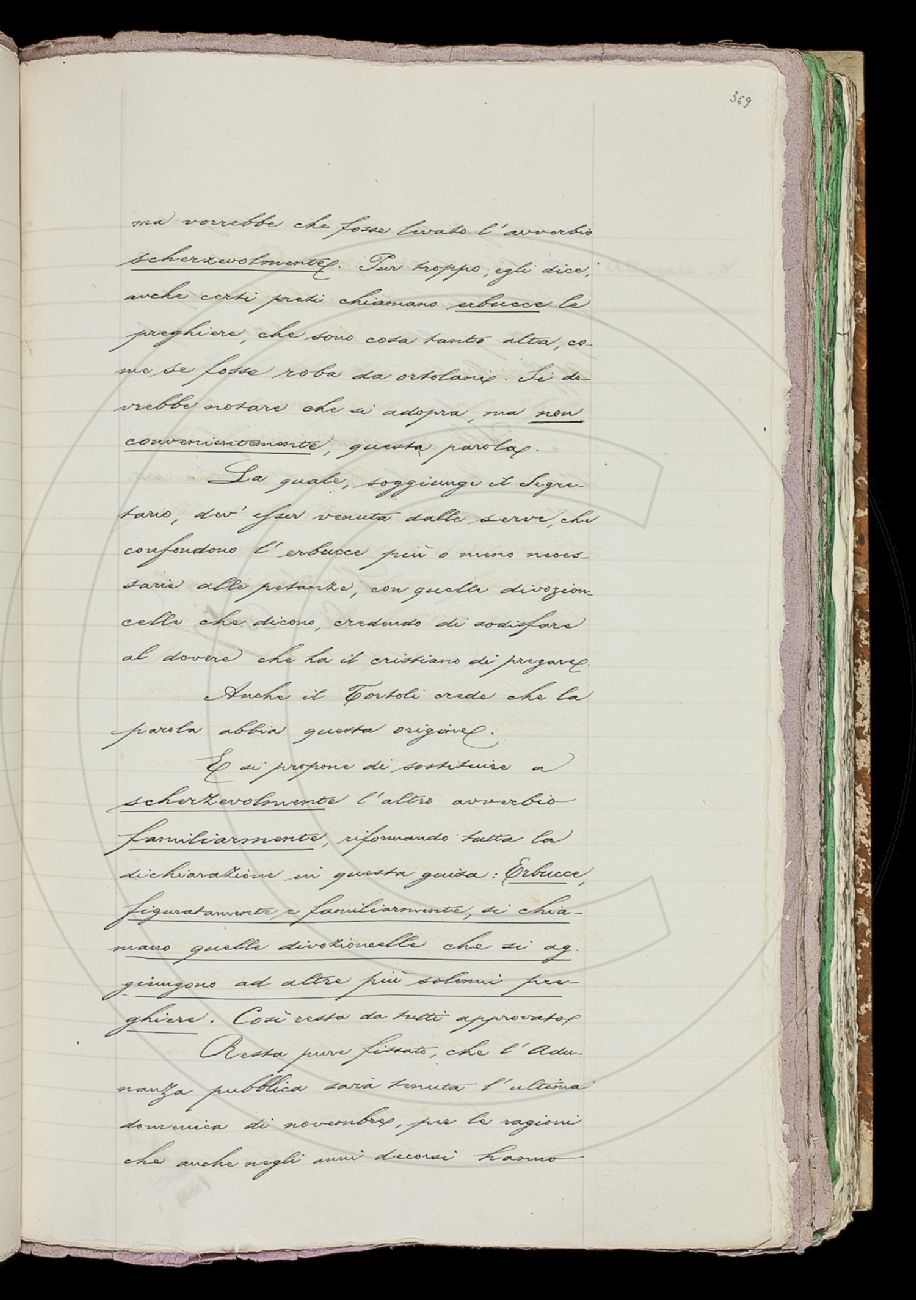 369
ma vorrebbe che fosse levato l'avverbio
scherzevolmente. Pur troppo, egli dice,
anche certi preti chiamano erbucce le
preghiere, che sono cosa tanto alta, co-
me se fosse roba da ortolani. Si do-
vrebbe notare che si adopra, ma non
convenientemente, questa parola.
La quale, soggiunge il Segre-
tario, dev'esser venuta dalle serve, che
confondono l'erbucce più o meno neces-
sarie alle pietanze, con quelle divozion-
celle che dicono, credendo di sodisfare
al dovere che ha il cristiano di pregare.
Anche il Tortoli crede che la
parola abbia questa origine.
E si propone di sostituire a
scherzevolmente l'altro avverbio
familiarmente, riformando tutta la
dichiarazione in questa guisa: Erbucce,
figuratamente e familiarmente, si chia-
mano quelle divozioncelle che si ag-
giungono ad altre più solenni pre-
ghiere. Così resta da tutti approvato.
Resta pure fissato, che l'Adu-
nanza pubblica sarà tenuta l'ultima
domenica di novembre, per le ragioni
che anche negli anni decorsi hanno